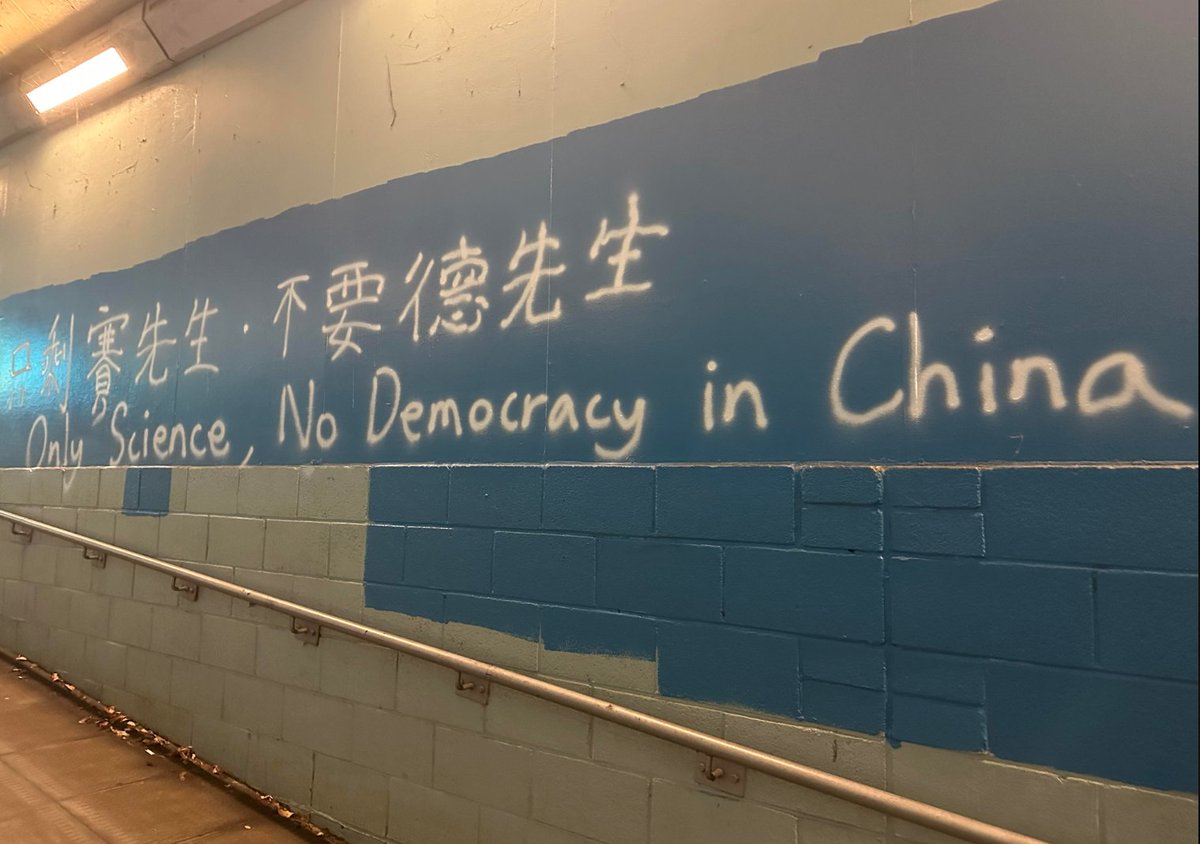 只剩賽先生·不要德先生
Only Science, No Democracy in China